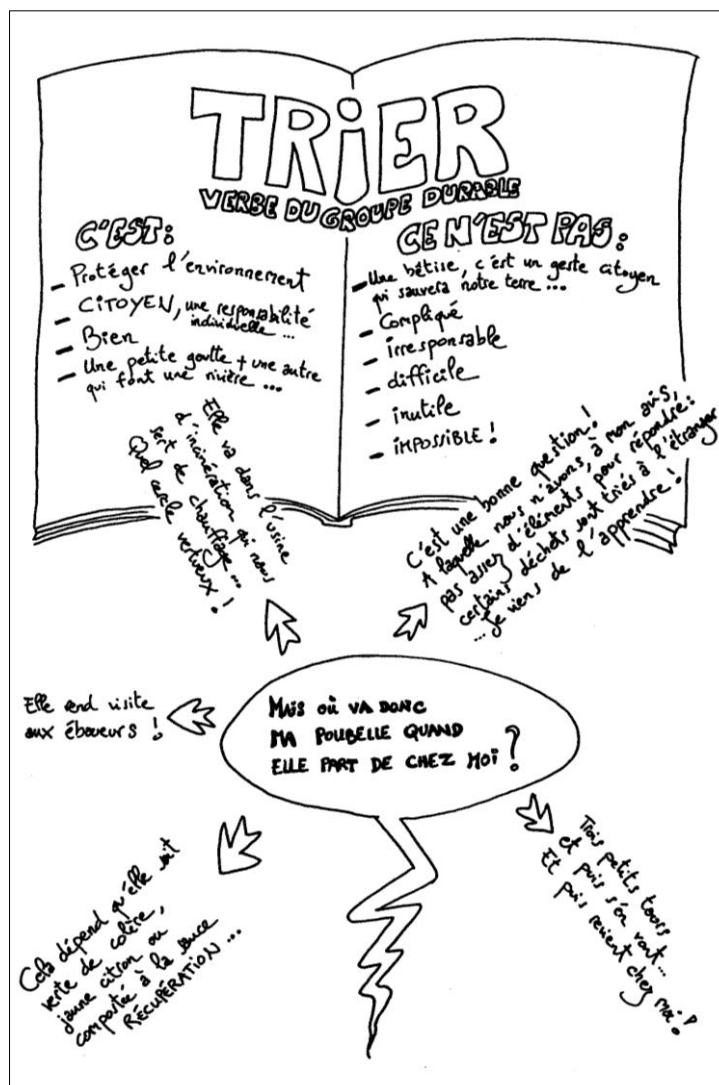 TRiER
VERBE DU GROUPE DURABLE
C'EST :
- Protéger l'environnement
- CiTOYEN, une responsabilité
individuelle ...
- Bien
- Une petite goutte + une autre
qui font une rivière ...
CE N'EST PAS :
- Une bêtise, c'est un geste citoyen
qui sauvera notre terre ...
- Compliqué
- irresponsable
- difficile
- inutile
- iMPOSSiBLE !
Elle va dans l'usine
d'incinération qui nous
sert de chauffage ...
Quel cercle
vertueux !
C'est une bonne question !
A laquelle nous n'avons, à mon avis,
pas assez d'éléments pour répondre :
certains déchets sont triés à l'étranger
... Je viens de l'apprendre !
Elle rend visite
aux éboueurs !
MAiS OÙ VA DONC
MA POUBELLE QUAND
ELLE PART DE CHEZ MOi ?
Cela dépend qu'elle soit
verte de colère,
jaune citron ou
compostée à la sauce
RÉCUPÉRATiON ...
Trois petits tours
et puis s'en vont ...
Et puis revient chez moi !